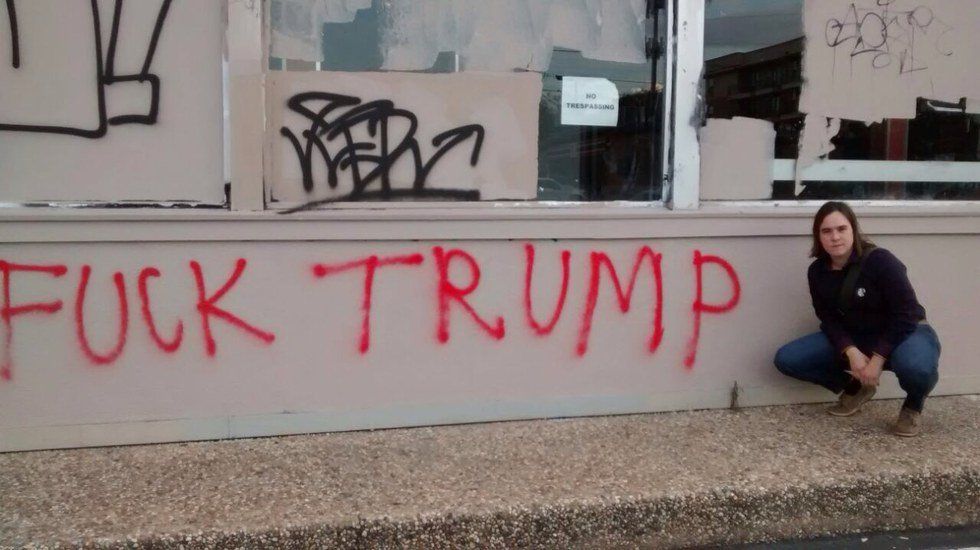 NO
TRESPASSING
FUCK TRUMP